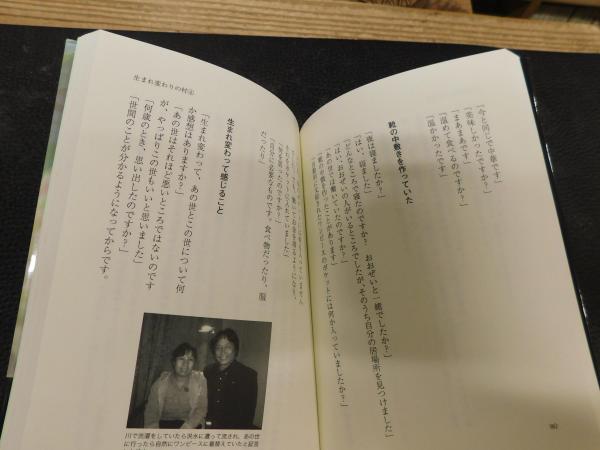 「今と同じで中華です」
「美味しかったですか？」
「まあまあです」
「温めて食べるのですか？」
「温かかったです」
靴の中敷きを作っていた
「夜は寝ましたか？」
「はい、寝ました」
「どんなところで寝たのですか？　おおぜいと一緒でしたか？」
「はい、おおぜいの人がいるところでしたが、そのうち自分の居場所を見つけました」
「あの世でも働いていたのですか？」
「靴の中敷きを作ったことがあります」
ワンピースのポケットには何か入っていましたか？」
生まれ変わりの村④
「自分に必要なものです。食べ物だったり、服
だったり」
生まれ変わって感じること
「生まれ変わって、あの世とこの世について何
か感想はありますか？」
「あの世はそれほど悪いところではないのです
が、やっぱりこの世もいいと思いました」
「何歳のとき、思い出したのですか？」
「世間のことが分かるようになってからです。
川で洗濯をしていたら洪水に遭って流され、あの世
に行ったら自然にワンピースに着替えていたと証言